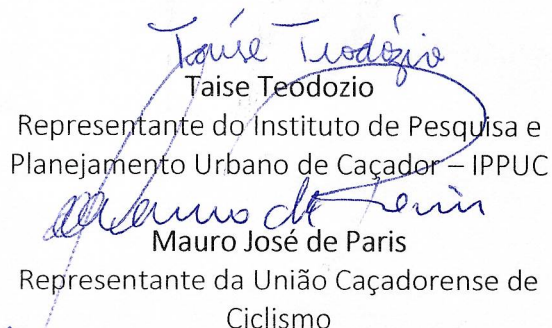 Taise Teodózio
Taise Teodozio
Representante do Instituto de Pesquisa e
Planejamento Urbano de Caçador – IPPUC
Mauro de Paris
Mauro José de Paris
Representante da União Caçadorense de
Ciclismo